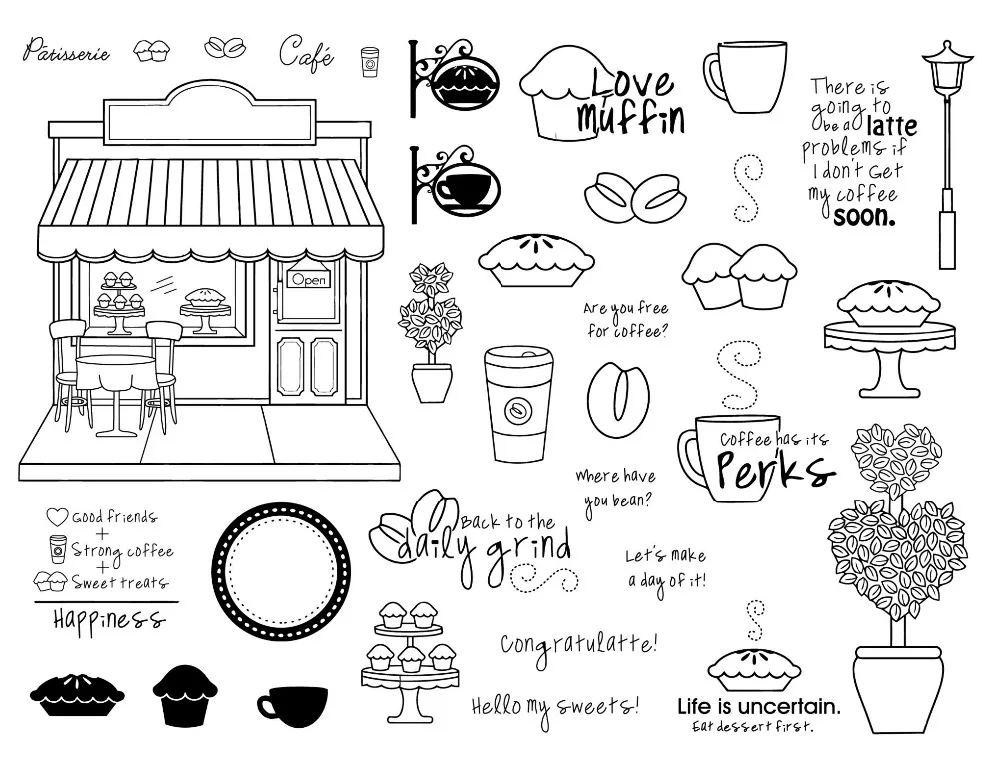 Pâtisserie
Café
Love
muffin
There is
going to
be a latte
problems if
I don't Get
my coffee
soon.
Open
Are you free
for coffee?
Coffee has its
Perks
Where have
you bean?
Good friends
+
Strong coffee
+
Sweet treats
Happiness
Back to the
daily grind
Let's make
a day of it!
Congratulatte!
Hello my sweets!
Life is uncertain.
Eat dessert first.